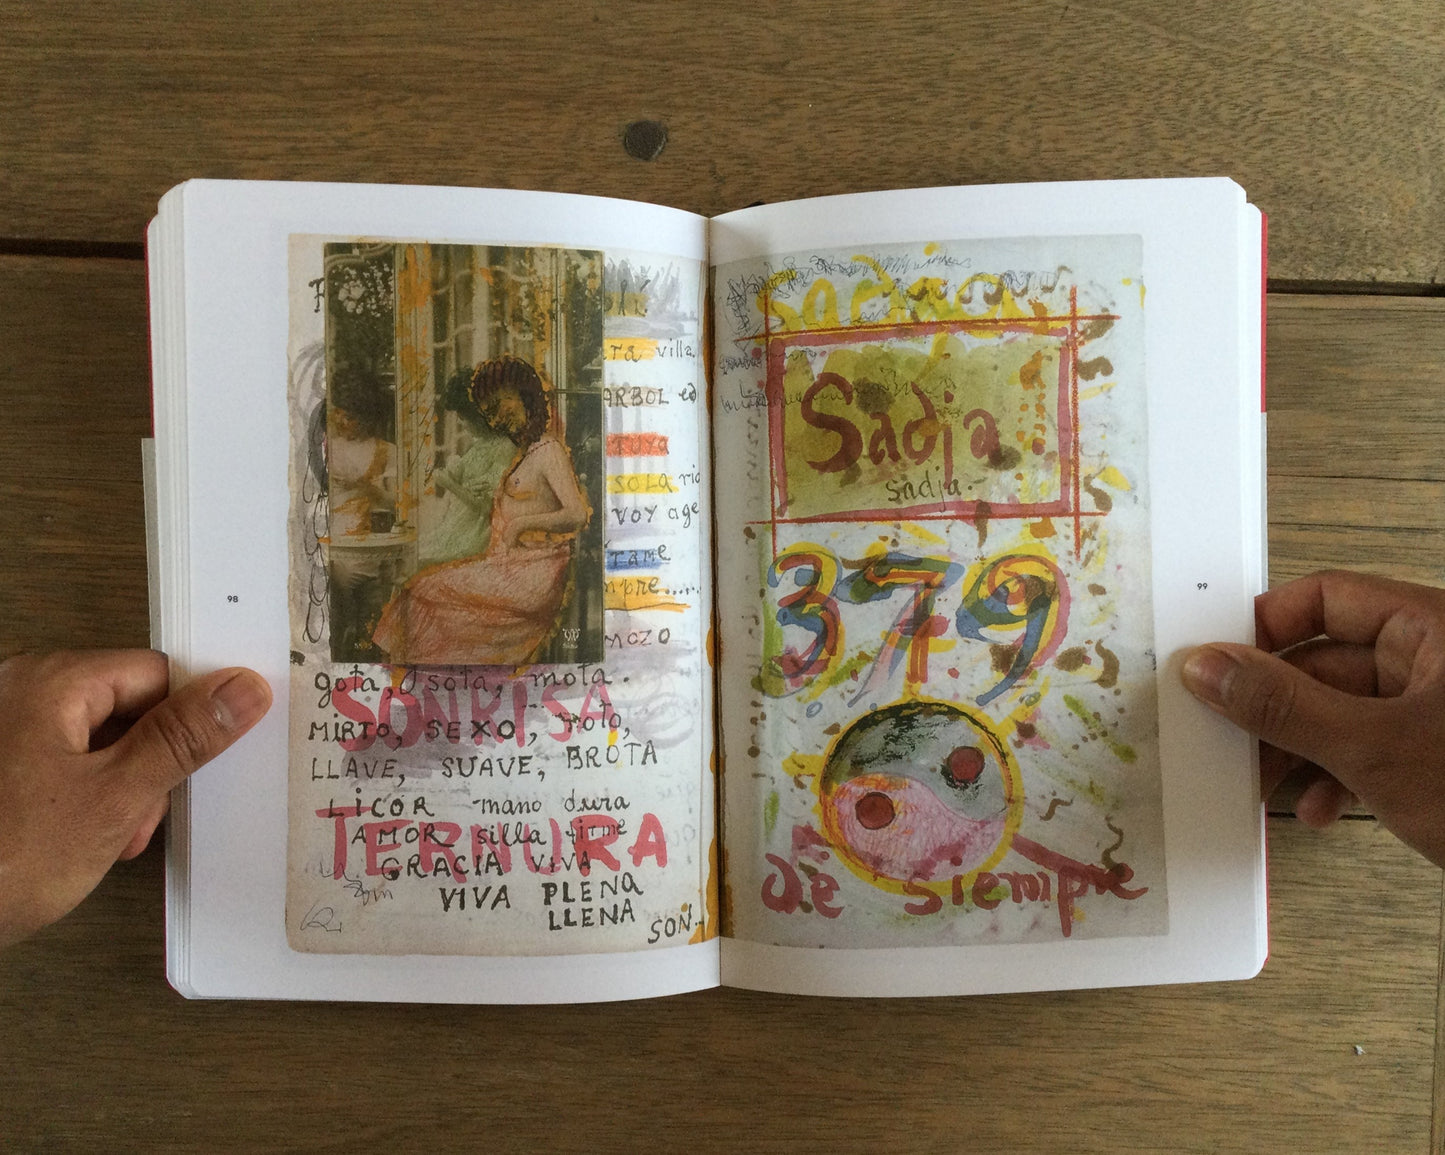 98
RA villa
ARBOL ed
TUYA
SOLA rio
VOY age
TAME
mpre......
MOZO
gota, sota, mota.
SONRISA
MIRTO, SEXO, ROTO,
LLAVE, SUAVE, BROTA
LICOR mano dura
TERNURA
AMOR silla firme
GRACIA VIVA
VIVA PLENA
LLENA
SON..
sadja
Sadja
sadja.-
379
de siempre
99